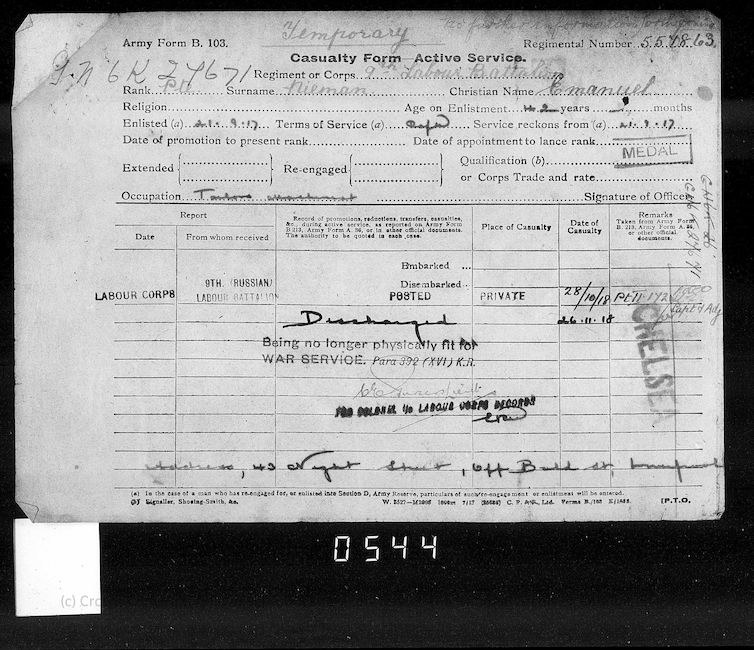 Temporary
no further information forthcoming
Army Form B. 103.
Regimental Number 557863
Casualty Form—Active Service.
Regiment or Corps 9th Labour Battalion
Rank Pte Surname Nieman Christian Name Emanuel
Religion Age on Enlistment 42 years months
Enlisted (a) 21.9.17 Terms of Service (a) Service reckons from (a) 21.9.17
Date of promotion to present rank Date of appointment to lance rank
MEDAL
Extended { } Re-engaged { } Qualification (b)
or Corps Trade and rate
Occupation Tailors Signature of Officer
Report
Date
From whom received
Record of promotions, reductions, transfers, casualties,
&c., during active service, as reported on Army Form
B.213, Army Form A. 36, or in other official documents.
The authority to be quoted in each case.
Place of Casualty
Date of
Casualty
Remarks
Taken from Army Form
B. 213, Army Form A. 36,
or other official
documents.
Embarked ...
Disembarked
LABOUR CORPS
9TH. (RUSSIAN)
LABOUR BATTALION
POSTED
PRIVATE
28/10/18
Pt II 172
Capt & Adj
Discharged
26.11.18
CHELSEA
Being no longer physically fit for
WAR SERVICE. Para 392 (XVI) K.R.
FOR COLONEL I/c LABOUR CORPS RECORDS
Address, 43 Street, off Bold St, Liverpool
(a) In the case of a man who has re-engaged for, or enlisted into Section D, Army Reserve, particulars of such re-engagement or enlistment will be entered.
(b) Signaller, Shoeing-Smith, &c.
[P.T.O.
0544
(c) Cro